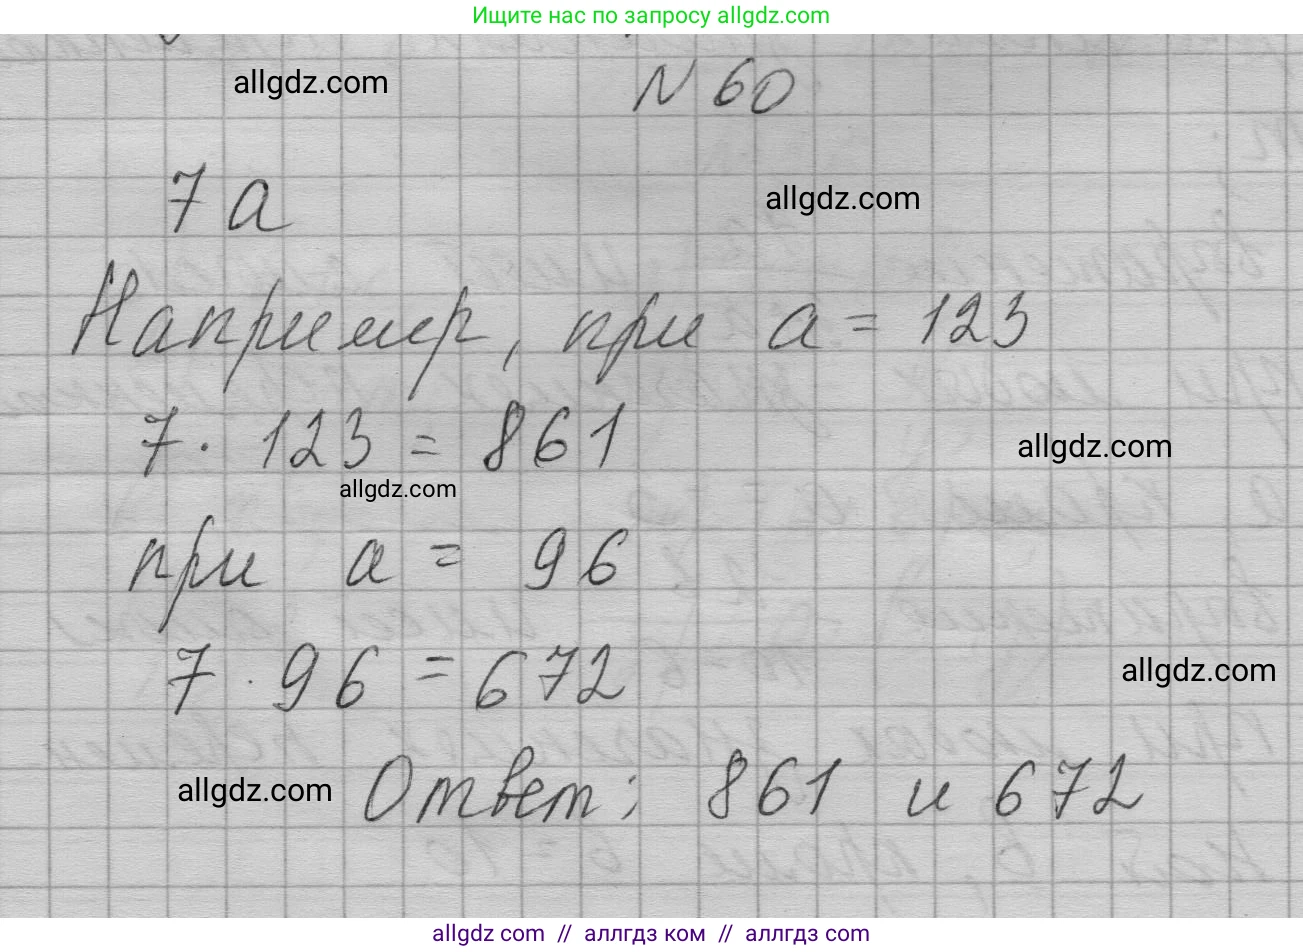 Ищите нас по запросу allgdz.com
allgdz.com
N 60
7a
allgdz.com
Например, при a = 123
7 · 123 = 861
allgdz.com
allgdz.com
при a = 96
7 · 96 = 672
allgdz.com
allgdz.com
Ответ: 861 и 672
allgdz.com // аллгдз ком // аллгдз com